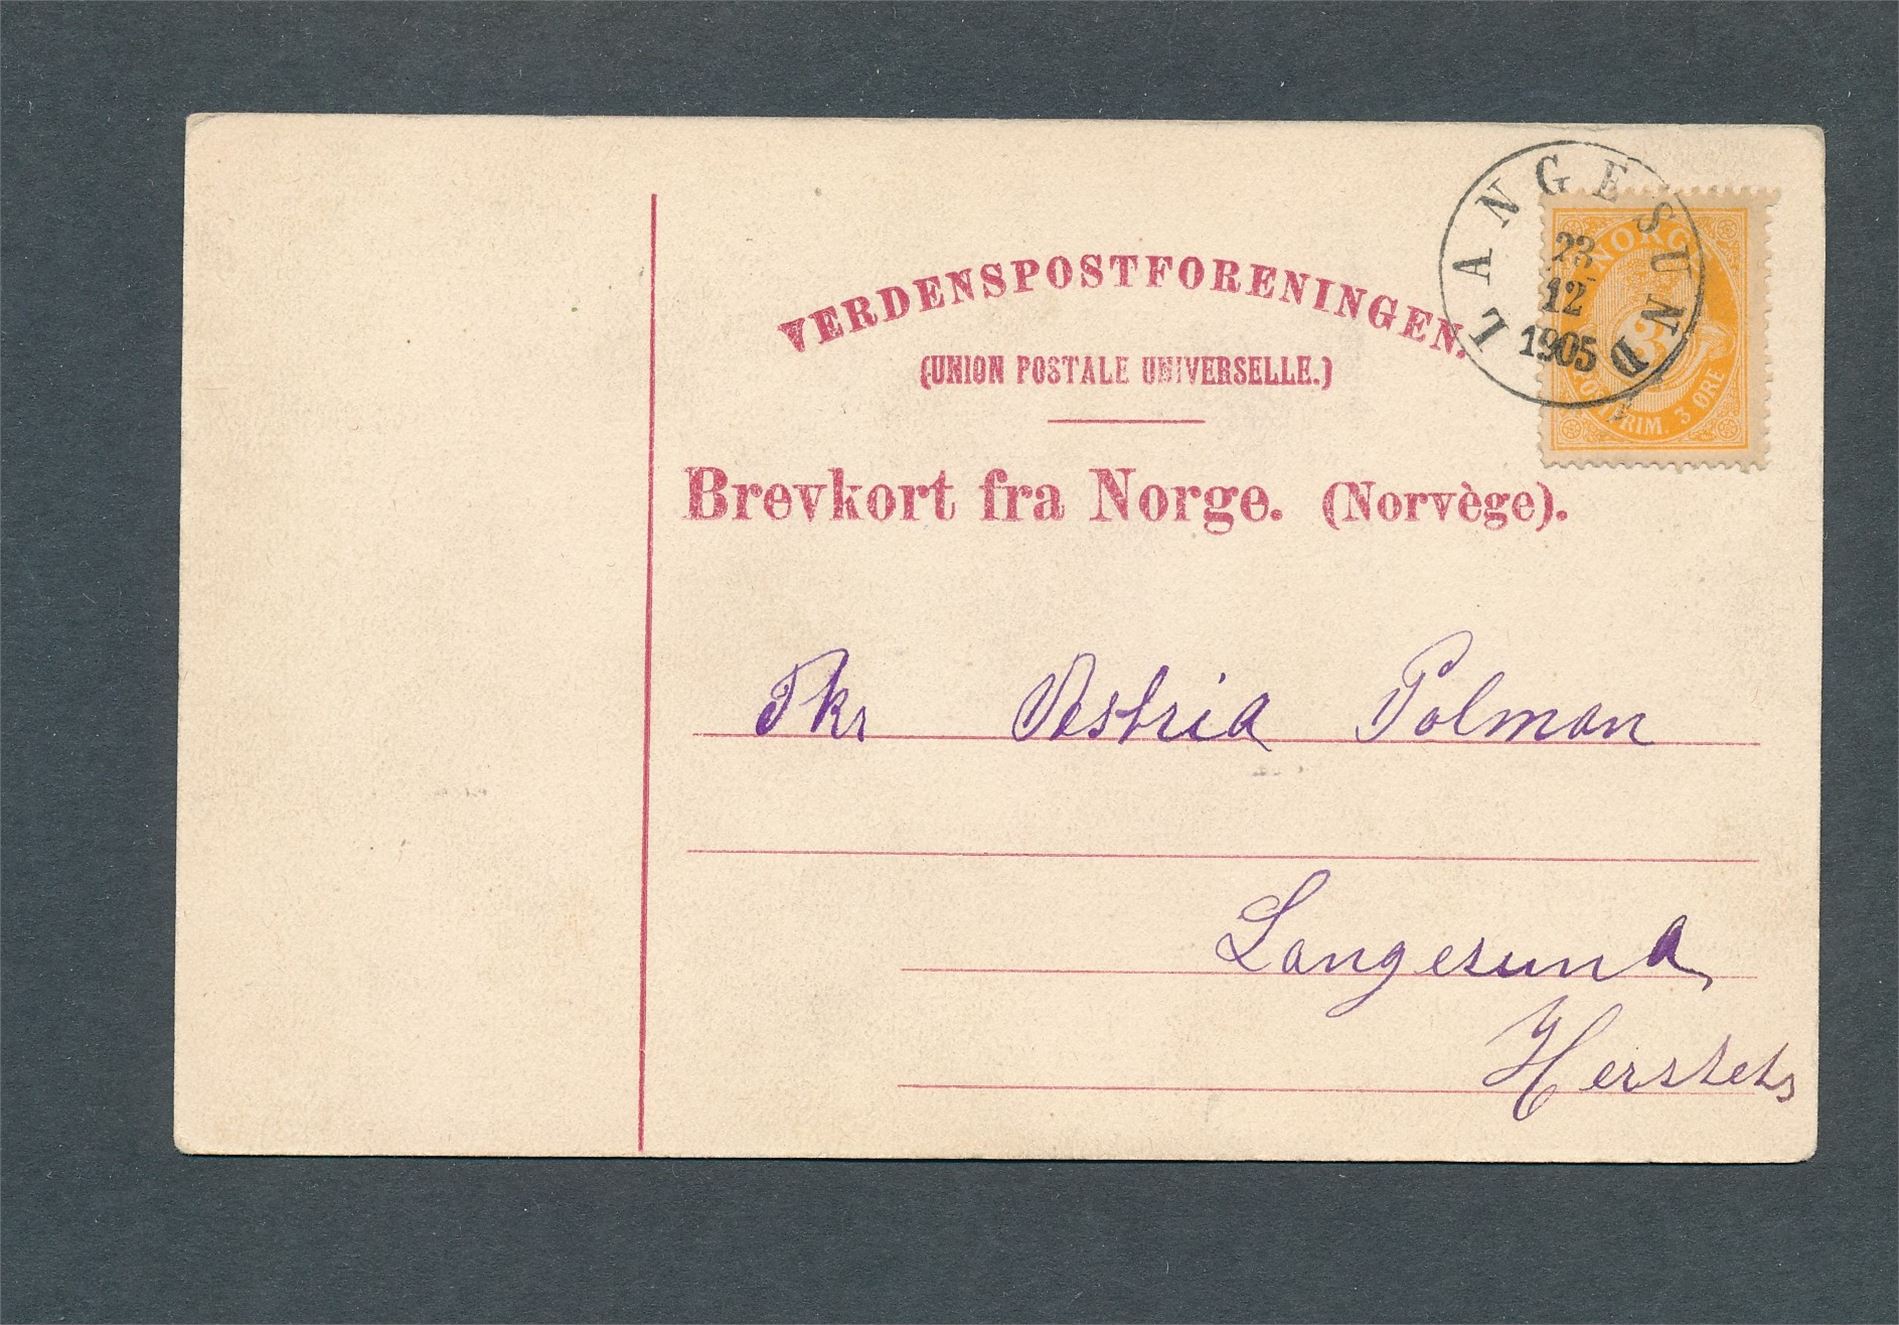 VERDENSPOSTFORENINGEN.
(UNION POSTALE UNIVERSELLE.)
LANGESUND
23
12
1905
NORGE
3
POSTFRIM. 3 ØRE
Brevkort fra Norge. (Norvège).
Frk Vestria Polman
Langesund